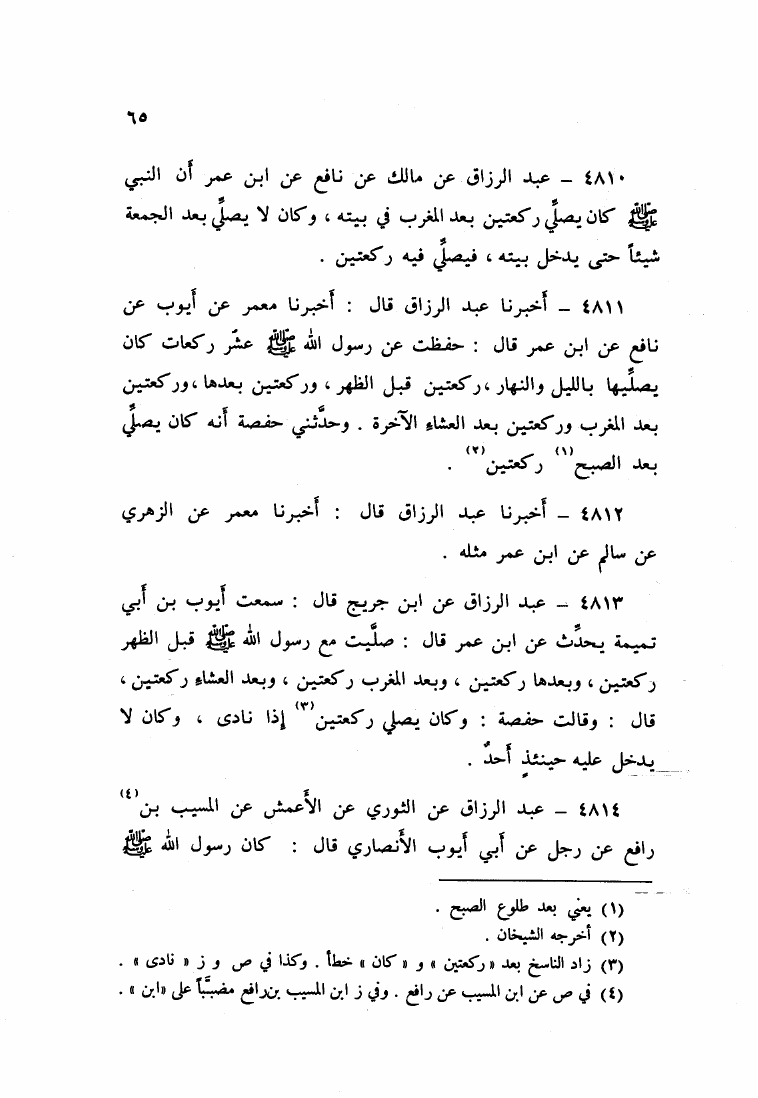 ٦٥
٤٨١٠ – عبد الرزاق عن مالك عن نافع عن ابن عمر أن النبي
ﷺ كان يصلِّي ركعتين بعد المغرب في بيته ، وكان لا يصلِّي بعد الجمعة
شيئاً حتى يدخل بيته ، فيصلِّي فيه ركعتين .
٤٨١١ – أخبرنا عبد الرزاق قال : أخبرنا معمر عن أيوب عن
نافع عن ابن عمر قال : حفظت عن رسول الله ﷺ عشْر ركعات كان
يصلِّيها بالليل والنهار ، ركعتين قبل الظهر ، وركعتين بعدها ، وركعتين
بعد المغرب وركعتين بعد العشاء الآخرة . وحدَّثني حفصة أنه كان يصلِّي
بعد الصبح (١) ركعتين (٢) .
٤٨١٢ – أخبرنا عبد الرزاق قال : أخبرنا معمر عن الزهري
عن سالم عن ابن عمر مثله .
٤٨١٣ – عبد الرزاق عن ابن جريج قال : سمعت أيوب بن أبي
تميمة يحدِّث عن ابن عمر قال : صلَّيت مع رسول الله ﷺ قبل الظهر
ركعتين ، وبعدها ركعتين ، وبعد المغرب ركعتين ، وبعد العشاء ركعتين ،
قال : وقالت حفصة : وكان يصلي ركعتين (٣) إذا نادى ، وكان لا
يدخل عليه حينئذٍ أحدٌ .
٤٨١٤ – عبد الرزاق عن الثوري عن الأعمش عن المسيب بن (٤)
رافع عن رجل عن أبي أيوب الأنصاري قال : كان رسول الله ﷺ
(١) يعني بعد طلوع الصبح .
(٢) أخرجه الشيخان .
(٣) زاد الناسخ بعد « ركعتين » و « كان » خطأ . وكذا في ص و ز « نادى » .
(٤) في ص عن ابن المسيب عن رافع . وفي ز ابن المسيب بن رافع مضبَّباً على «ابن » .